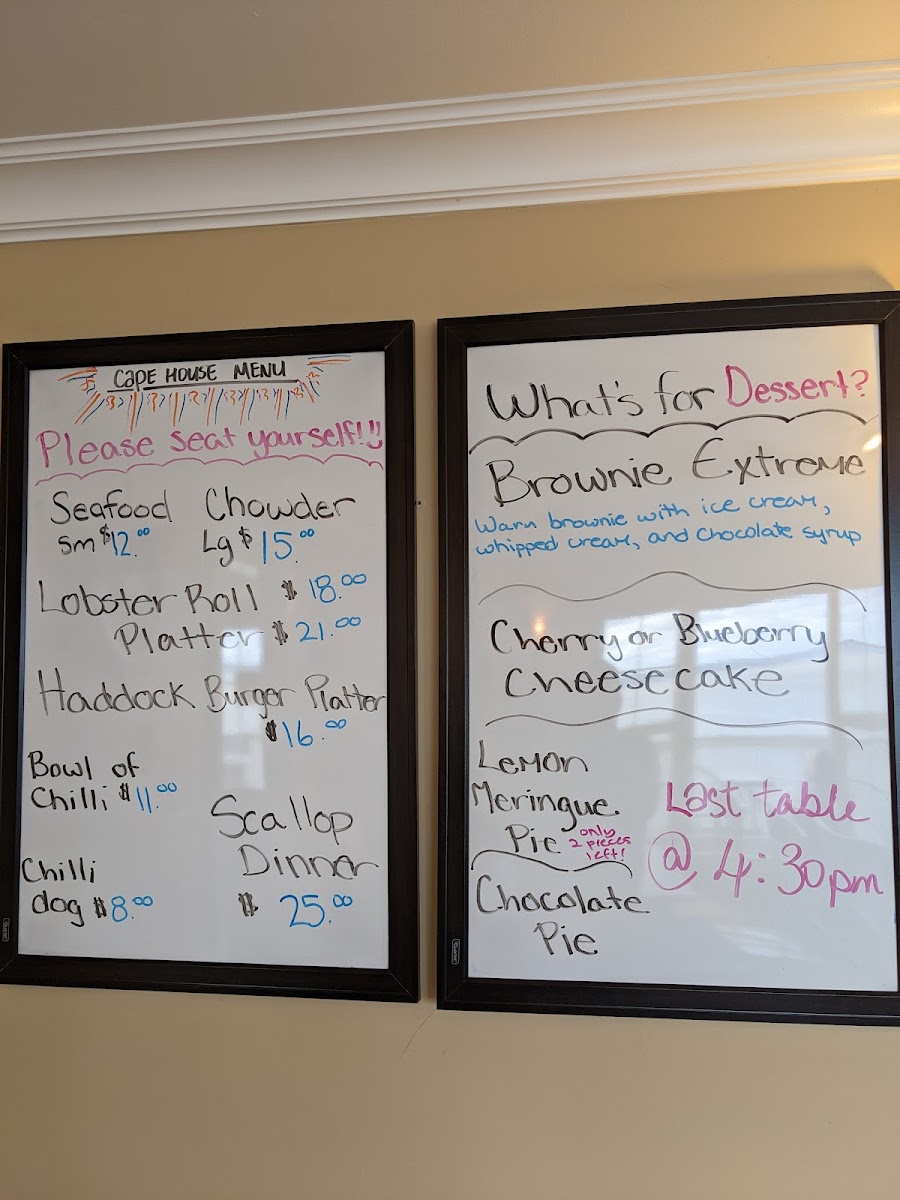 Cape House Menu
Please seat yourself!!!
Seafood Chowder
Sm $12.00 Lg $15.00
Lobster Roll $18.00
Platter $21.00
Haddock Burger Platter
$16.00
Bowl of
Chilli $11.00
Scallop
Dinner
$25.00
Chilli
dog $8.00
What's for Dessert?
Brownie Extreme
Warm brownie with ice cream,
whipped cream, and chocolate syrup
Cherry or Blueberry
Cheesecake
Lemon
Meringue
Pie only
2 pieces
left!
Chocolate
Pie
Last table
@ 4:30pm